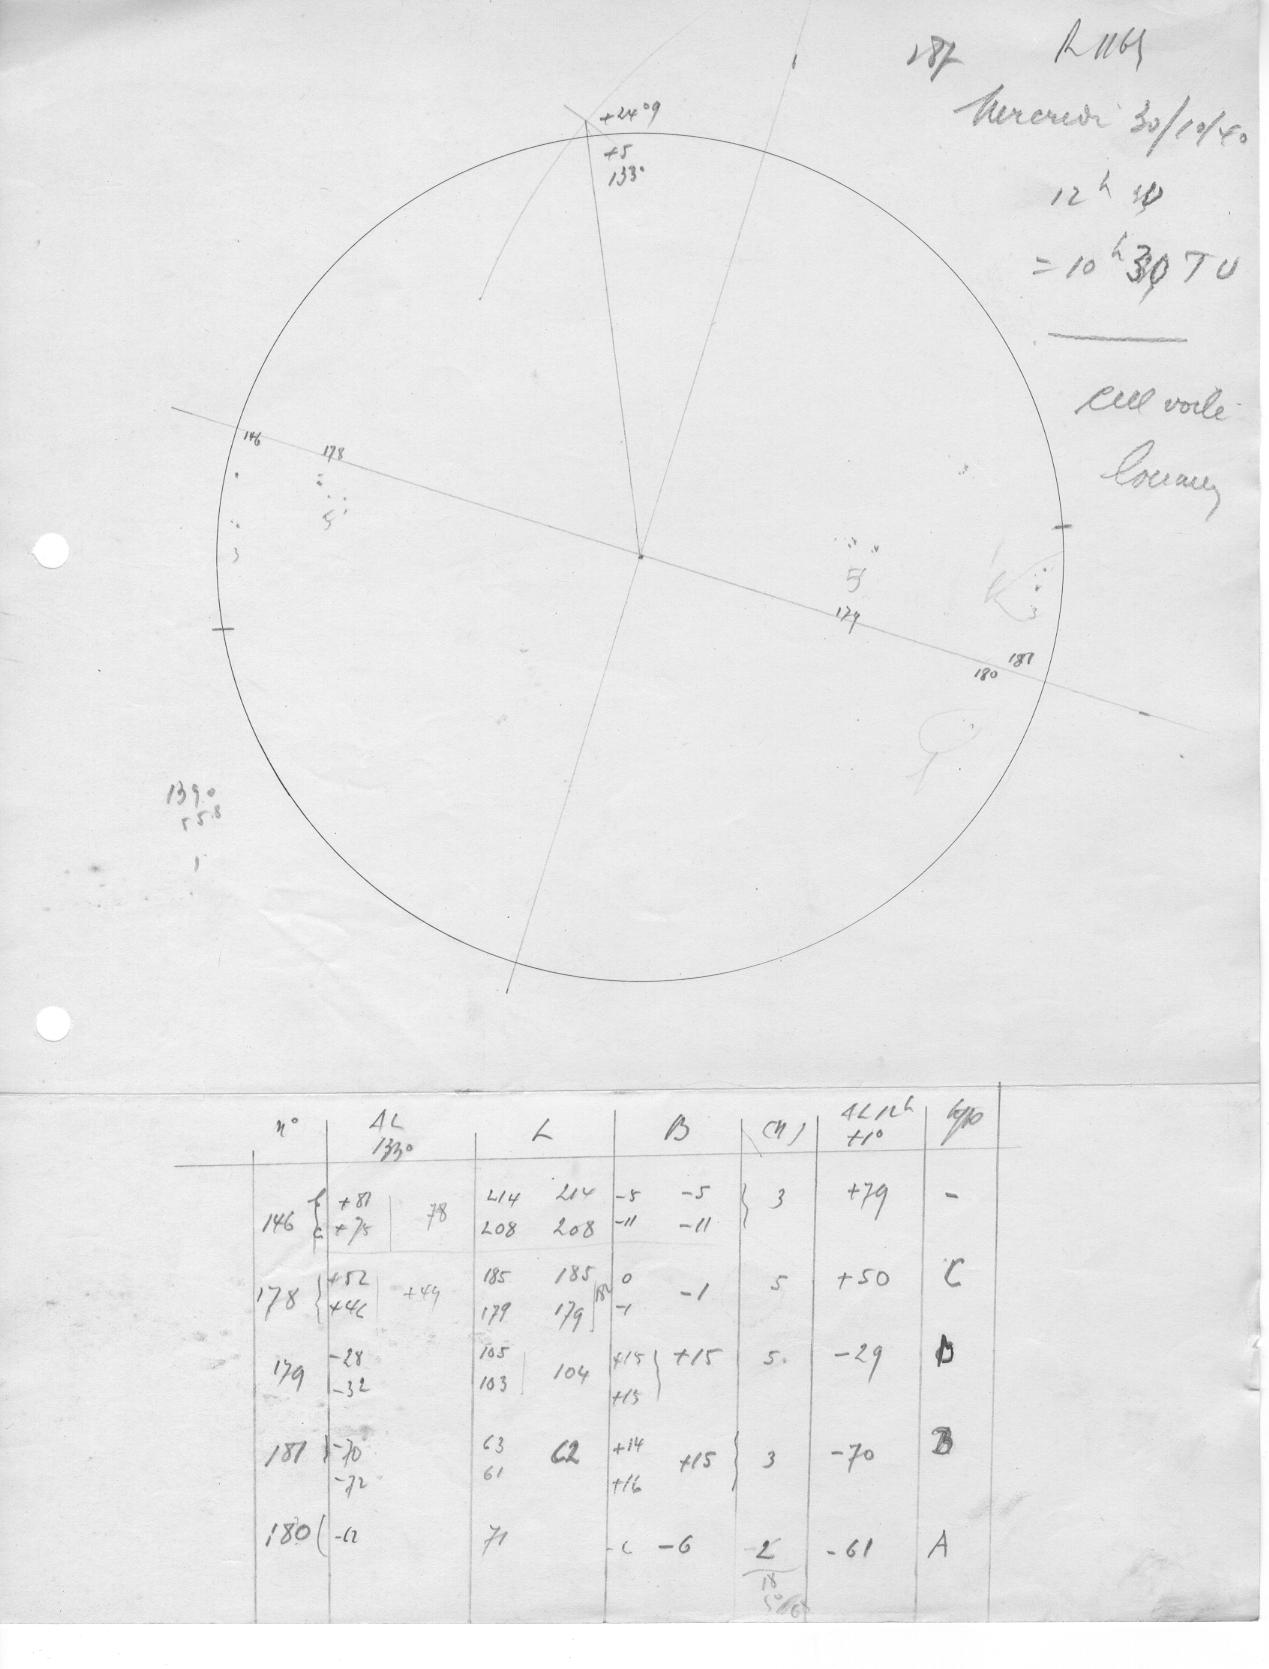 287 R 1165
Mercredi 30/10/40
12h
= 10h 30 TU
ciel voilé
+24°9
+5
133°
146
178
5
3
3
5
179
3
181
180
1390
558
1
n° AL 133° L B (N) AL 12h +1° type
146 +81 78 214 214 -5 -5 3 +79 -
+75 208 208 -11 -11
178 +52 +49 185 185 182 0 -1 5 +50 C
+46 179 179 -1
179 -28 105 104 +15 +15 5 -29 D
-32 103 +15
181 -70 63 62 +14 +15 3 -70 B
-72 61 +16
180 -62 71 -6 -6 2 -61 A
18